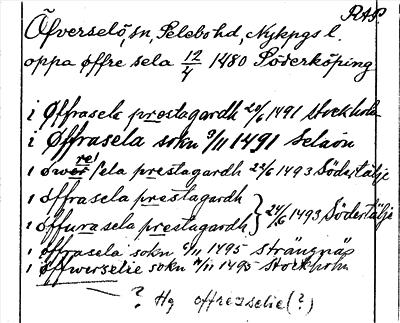 RAP.
Öfverselö, sn, Selebo hd, Nykpgs l.
oppa øffre sela 12/4 1480 Söderköping
i Øffrasela prestagardh 20/6 1491 Stockholm
i Øffrasela sokn 9/11 1491 Selaön
i øwerre sela prestagardh 24/6 1493 Södertälje
i øffrasela prestagardh
i øffurasela prestagardh } 24/6 1493 Södertälje
i øffrasela sokn 6/11 1495 Strängnäs
i øffwerselie sokn 11 1495 Stockholm
? Hg offrezelie (?)